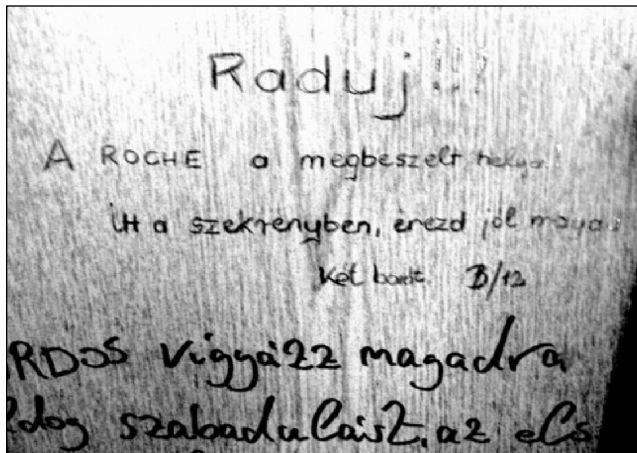 Raduj!!!
A ROCHE a megbeszelt helyen
itt a szekrenyben, erezd jól magad
Két barát B/12
RDOS vigyázz magadra
ldog szabadulást, az els